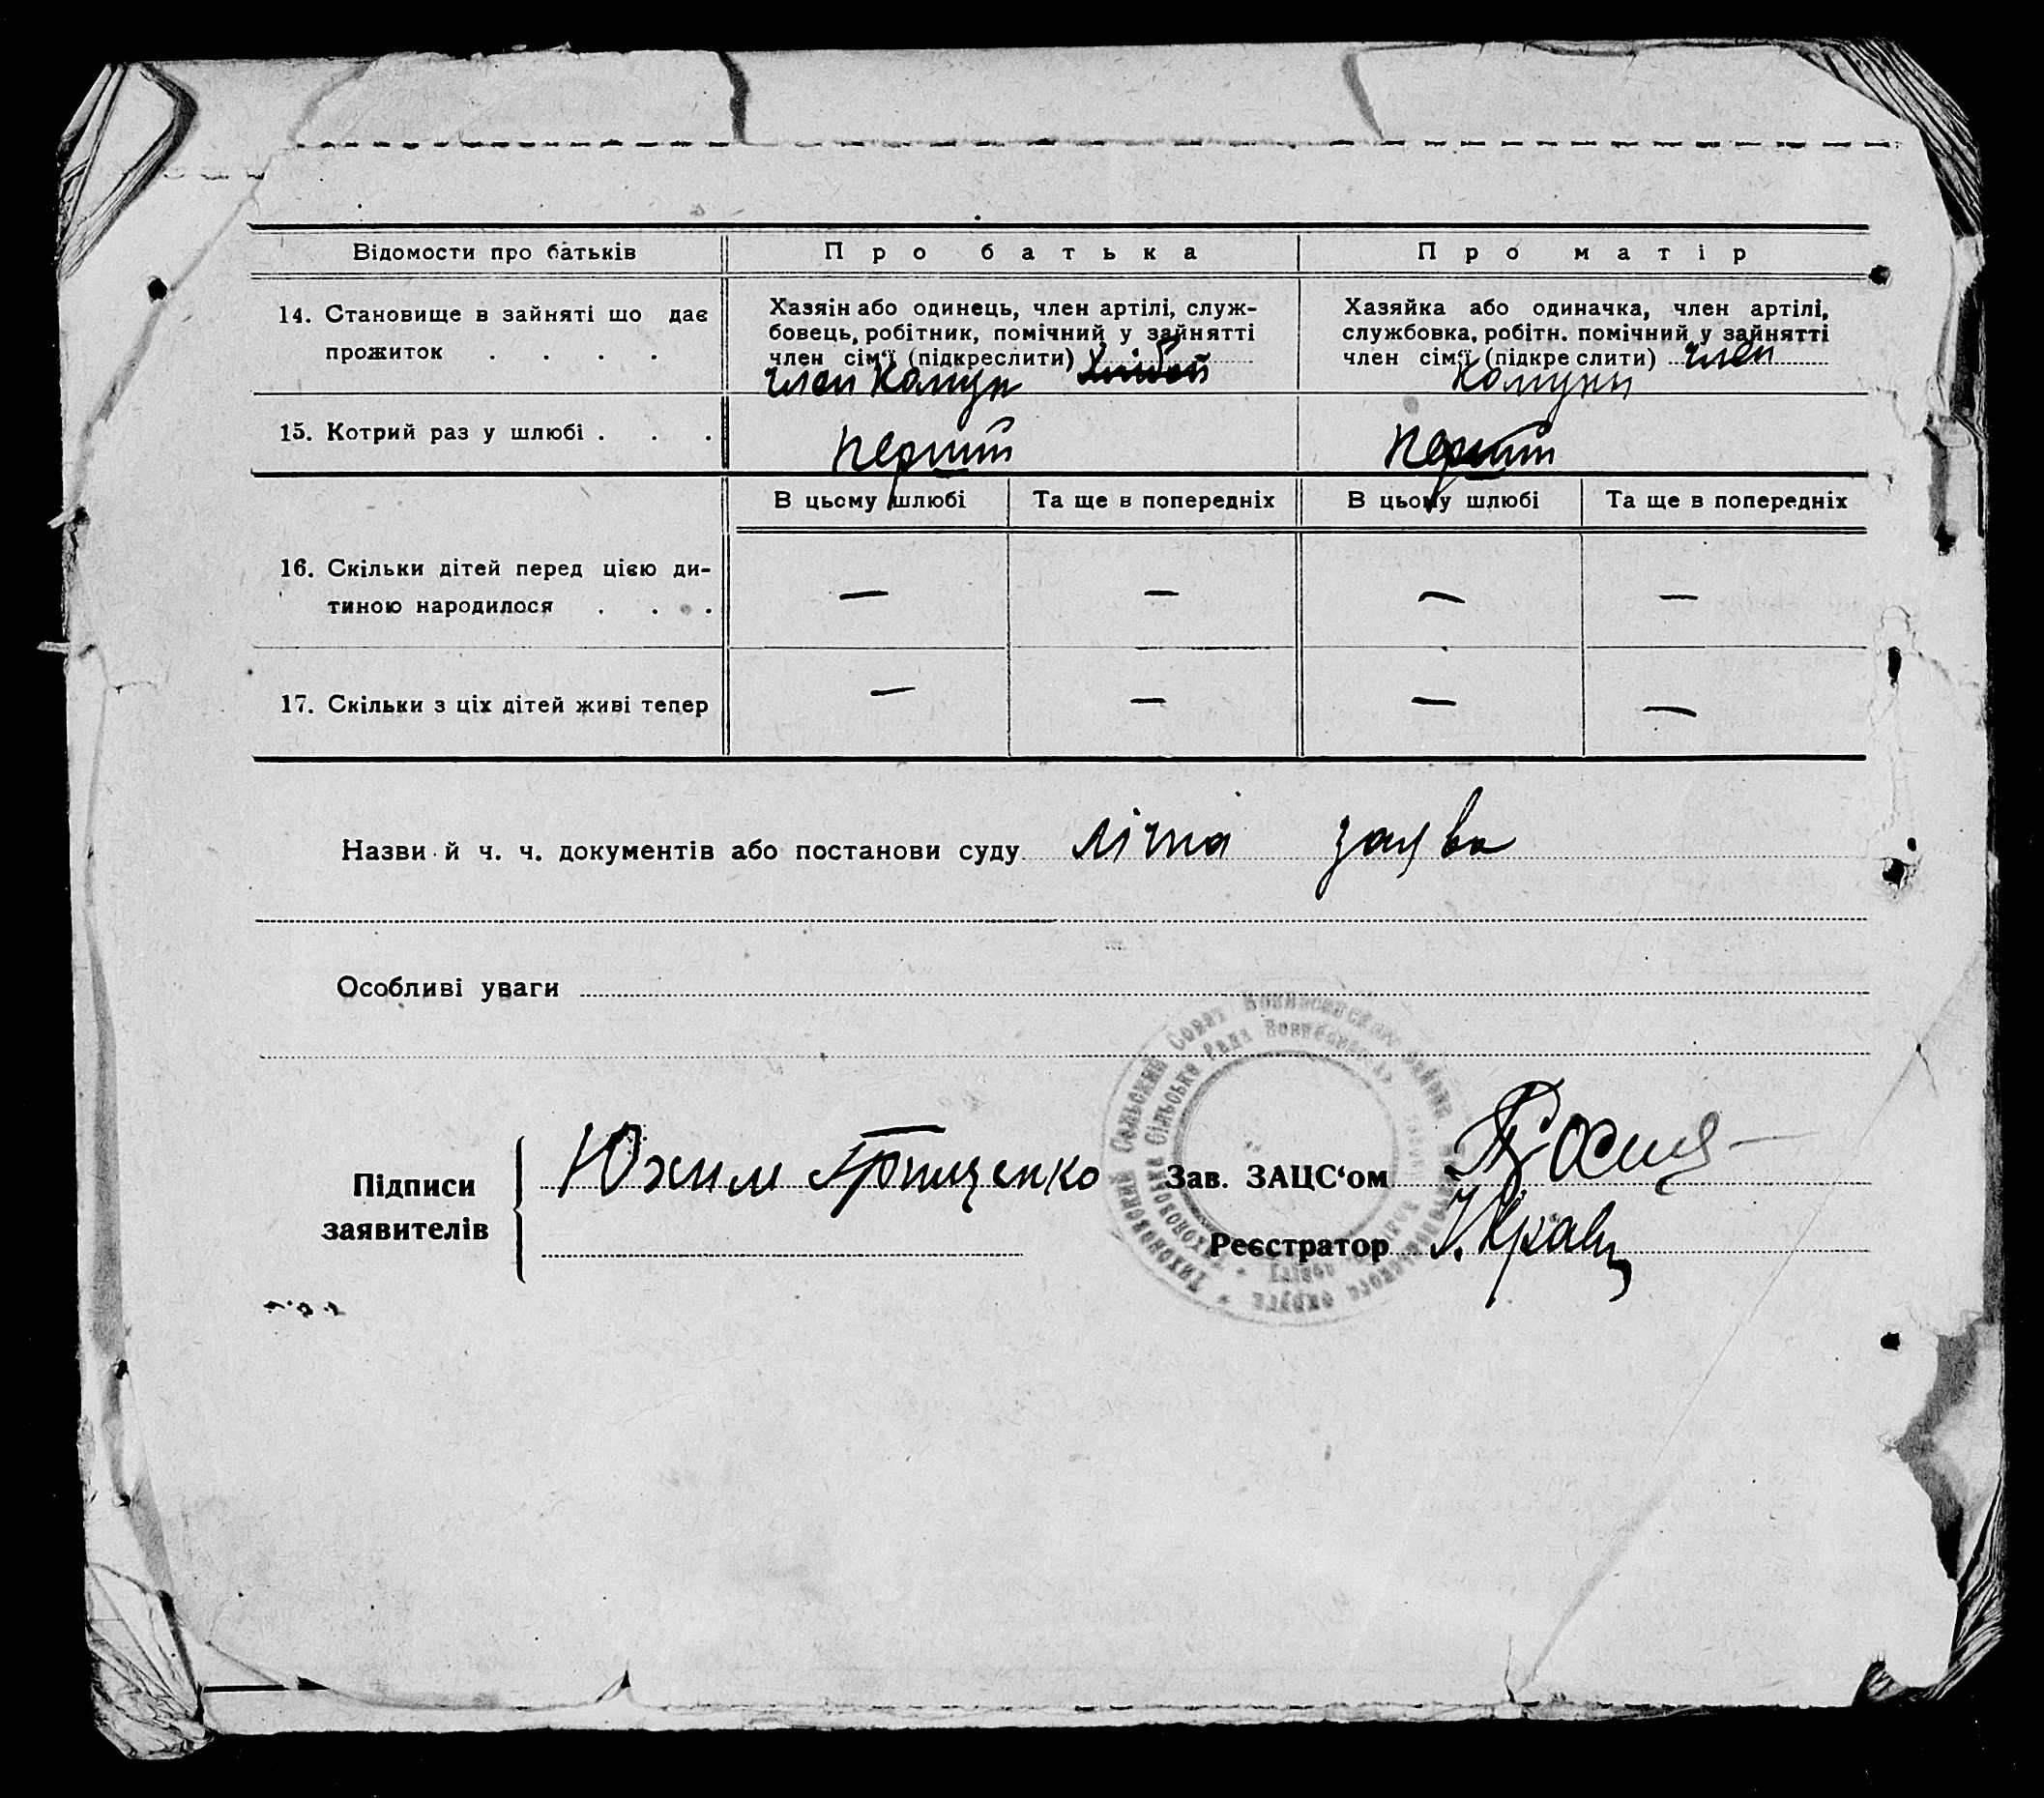 Відомости про батьків
Про батька
Про матір
14. Становище в зайняті що дає
прожиток . . . .
Хазяін або одинець, член артілі, служ-
бовець, робітник, помічний у зайнятті
член сім'ї (підкреслити)
член комун
Хазяйка або одиначка, член артілі,
службовка, робітн. помічний у зайнятті
член сім'ї (підкреслити) член
комуни
15. Котрий раз у шлюбі . . .
перший
перший
В цьому шлюбі
Та ще в попередніх
В цьому шлюбі
Та ще в попередніх
16. Скільки дітей перед цією ди-
тиною народилося . . .
— — — —
17. Скільки з ціх дітей живі тепер
— — — —
Назви й ч. ч. документів або постанови суду літна заява
Особливі уваги
Тихоновский Сельский Совет района округа
Тихоновська Сільська Рада
Підписи
заявителів
Юхим Грищенко
Зав. ЗАЦС‘ом
Реєстратор І. Кравц